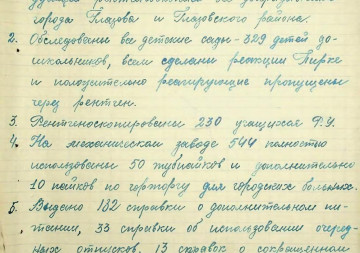 города Глазова и Глазовского района.
2. Обследованы все детские сады - 329 детей до-
школьников, всем сделаны реакции Пирке
и положительно реагирующие пропущены
через рентген.
3. Рентгеноскопированы 230 учащихся Ф.У.
4. На механическом заводе 544 полностью
использованы 50 тубпайков и дополнительно
10 пайков по горторгу для городских больных.
5. Выдано 182 справки о дополнительном пи-
тании, 33 справки об использовании очеред-
ных отпусков, 13 справок о сокращенном